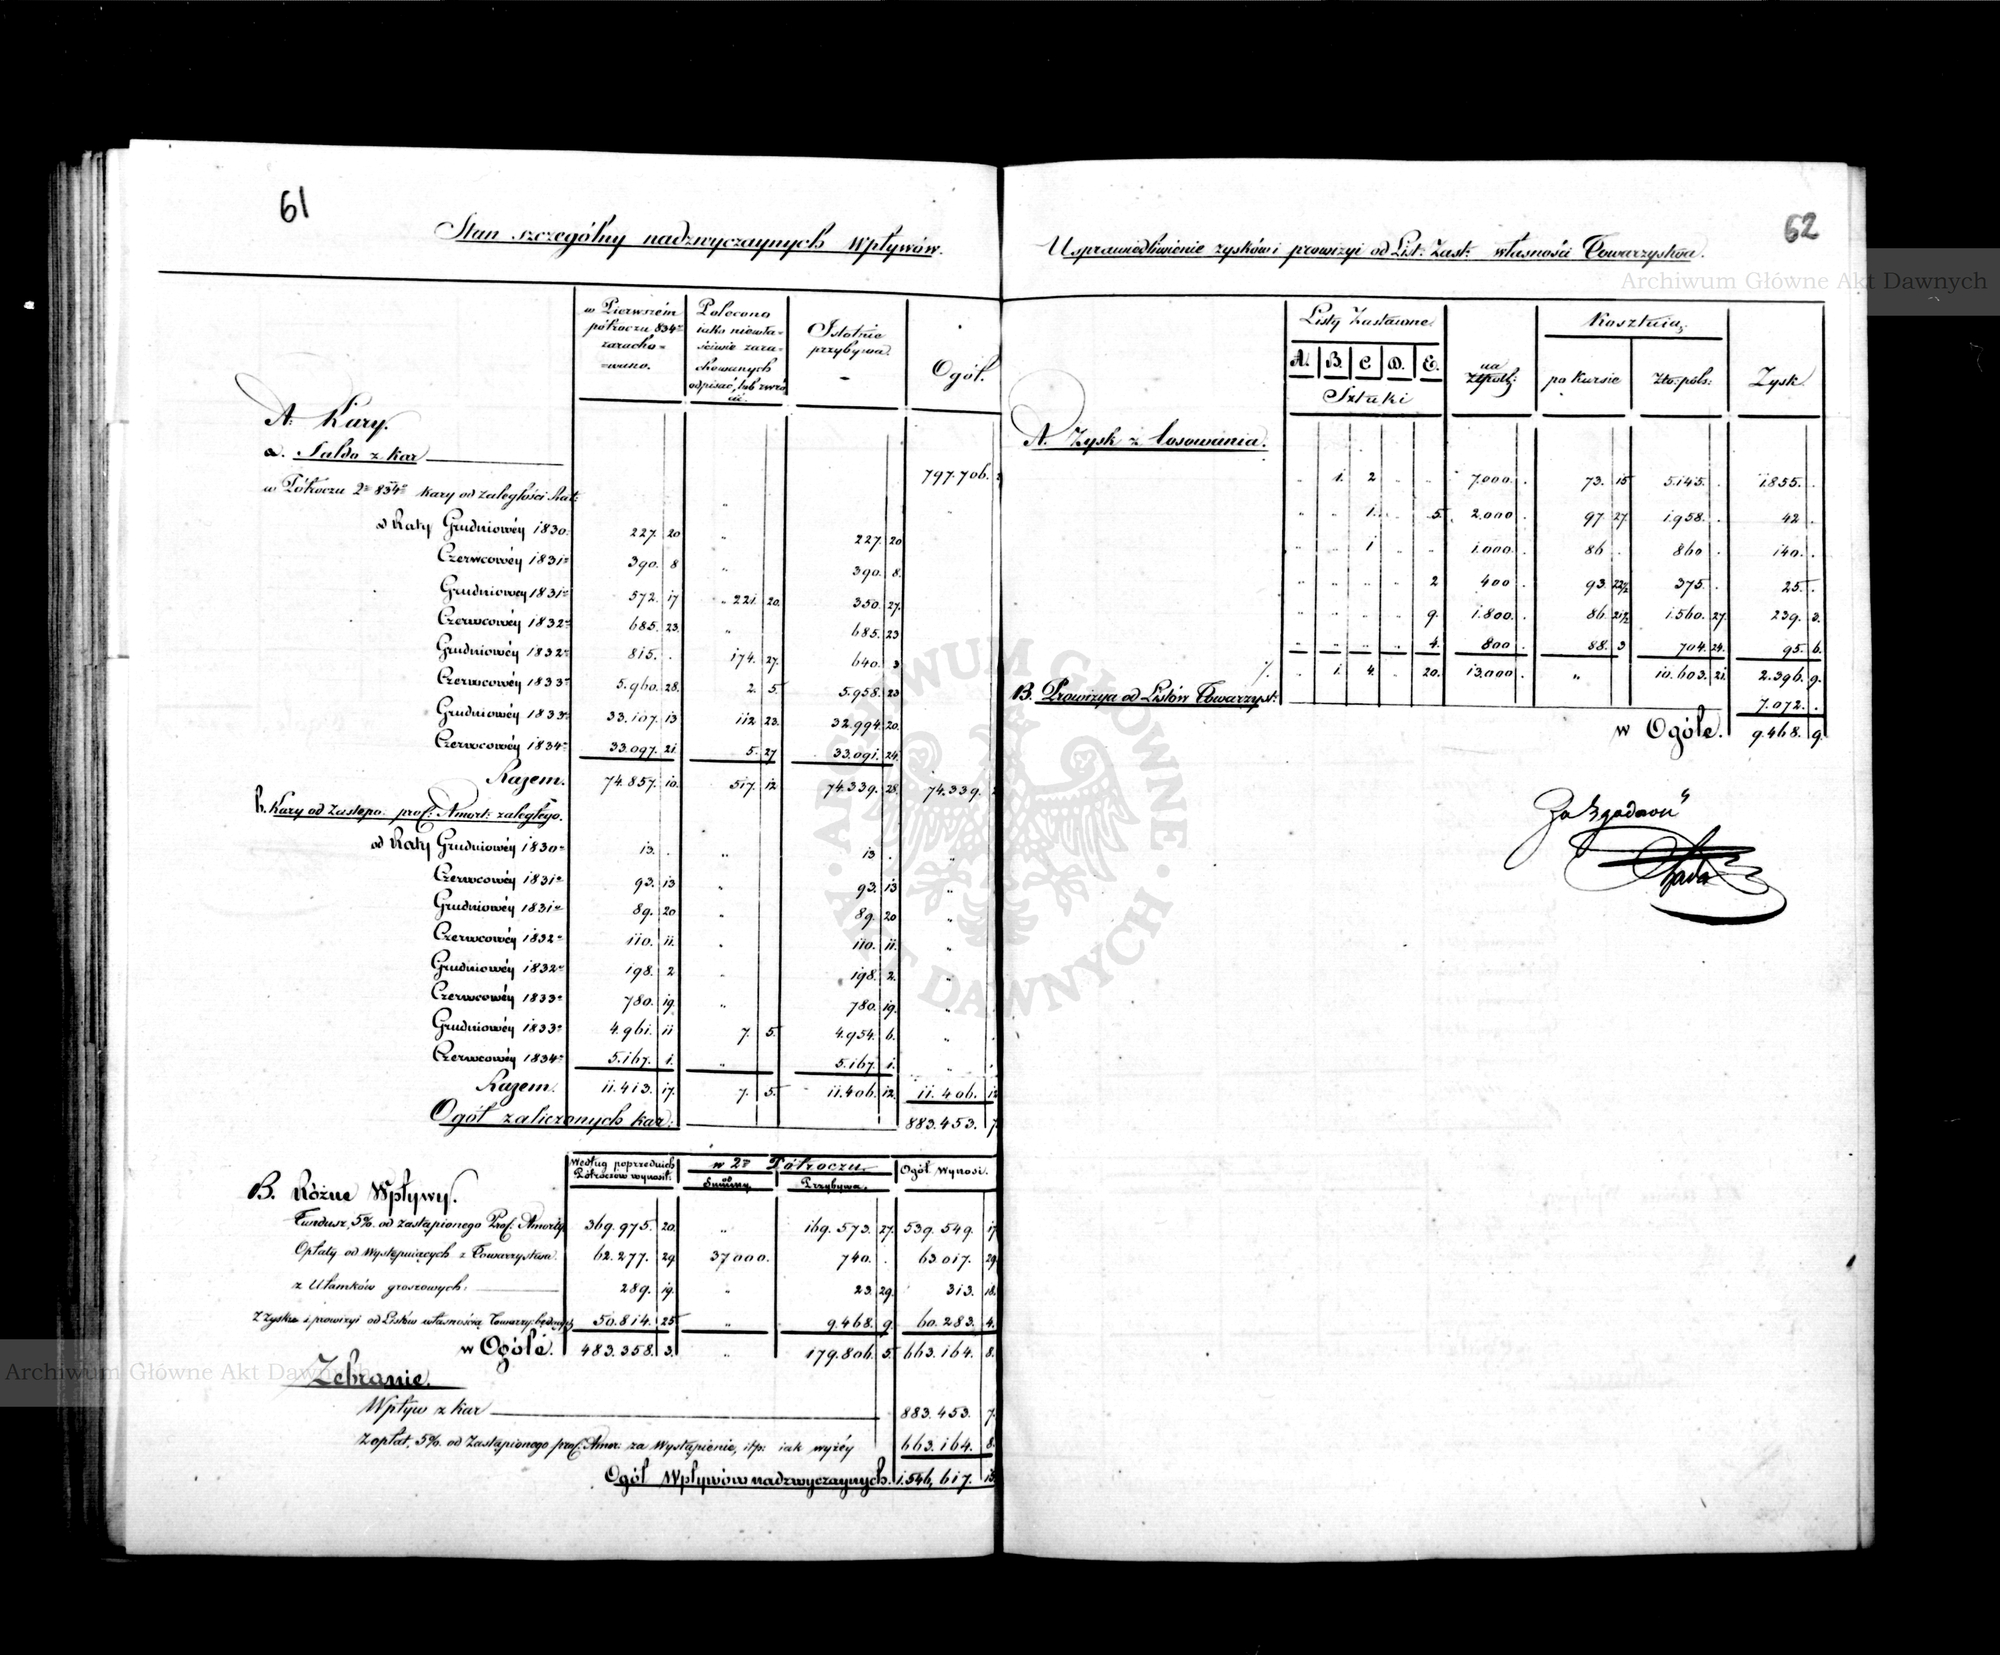 61
Stan szczególny nadzwyczaynych Wpływów.
w Pierwszém półroczu 834 zaracho= =wano.
Polecono iako niewła= ściwie zara= chowanych odpisać, lub zwró cić.
Istotnie przybywa.
Ogół.
A. Kary.
a. Saldo z kar 797.706.
w Półroczu 2m 834r kary od zaległości Rat:
od Raty Grudniowéy 1830 227. 20 " 227. 20
Czerwcowéy 1831 390. 8 " 390. 8.
Grudniowéy 1831 572. 17 " 221. 20. 350. 27.
Czerwcowéy 1832 685. 23. " 685. 23
Grudniowéy 1832 815. . 174. 27. 640. 3
Czerwcowéy 1833 5.960. 28. 2. 5. 5.958. 23
Grudniowéy 1833 33.107. 13 112. 23. 32.994. 20.
Czerwcowéy 1834 33.097. 21. 5. 27 33.091. 24.
Razem. 74.857. 10. 517. 12. 74.339. 28. 74.339.
b. Kary od Zastępo. prof: Amort: zaległego.
od Raty Grudniowéy 1830 13. . " 13 . "
Czerwcowéy 1831 93. 13 " 93. 13 "
Grudniowéy 1831 89. 20 " 89. 20 "
Czerwcowéy 1832 110. 11. " 110. 11. "
Grudniowéy 1832 198. 2 198. 2. "
Czerwcowéy 1833 780. 19. " 780. 19. "
Grudniowéy 1833 4.961. 11 7. 5. 4.954. 6. "
Czerwcowéy 1834 5.167. 1. " 5.167. 1. "
Razem. 11.413. 17. 7. 5. 11.406. 12. 11.406. 12
Ogół zaliczonych kar. 883.453. 7.
Według poprzednich Półroczów wynosił.
w 2m Półroczu.
Summy. Przybywa.
Ogół Wynosi.
B. Różne Wpływy.
Fundusz, 5%. od zastąpionego Prof. Amorty. 369.975. 20. " 169.573. 27. 539.549. 17
Opłaty od Występuiących z Towarzystwa. 62.277. 29. 37000. 740. . 63.017. 29.
z Ułamków groszowych. 289. 19. " 23. 29. 313. 18.
Z Zysku i prowizyi od Listów własnością Towarzy: będących 50.814. 25. " 9.468. 9. 60.283. 4.
w Ogóle. 483.358. 3. " 179.806. 5. 663.164. 8.
Zebranie.
Wpływ z kar 883.453. 7.
Z opłat, 5%. od Zastąpionego prof. Amor: za Wystąpienie, itp: iak wyżéy 663.164. 8.
Ogół Wpływów nadzwyczaynych. 1.546,617. 15.
62
Usprawiedliwienie zysków i prowizyi od List: Zast: własności Towarzystwa.
Listy Zastawne.
A. B. C D. E.
Sztuki
na złpol:
Kosztuią;
po kursie
Zło: pols:
Zysk.
A. Zysk z losowania.
" 1. 2 " " 7.000. . 73. 15 5.145. . 1.855. .
" " 1. " 5. 2.000 . 97. 27. 1.958. . 42 .
" " 1 " " 1.000. . 86 . 860 . 140. .
" " " " 2 400 . 93. 22½ 375. . 25. .
" " " " 9. 1.800. . 86. 21½ 1.560. 27. 239. 3.
" " " " 4. 800 . 88. 3 704. 24. 95. 6.
" 1. 4. " 20. 13.000. . " 10.603. 21. 2.396. 9.
B. Prowizya od Listów Towarzyst: 7.072. .
w Ogóle. 9.468. 9.
Za Zgodność
Archiwum Główne Akt Dawnych
Archiwum Główne Akt Dawnych
ARCHIWUM GŁÓWNE AKT DAWNYCH